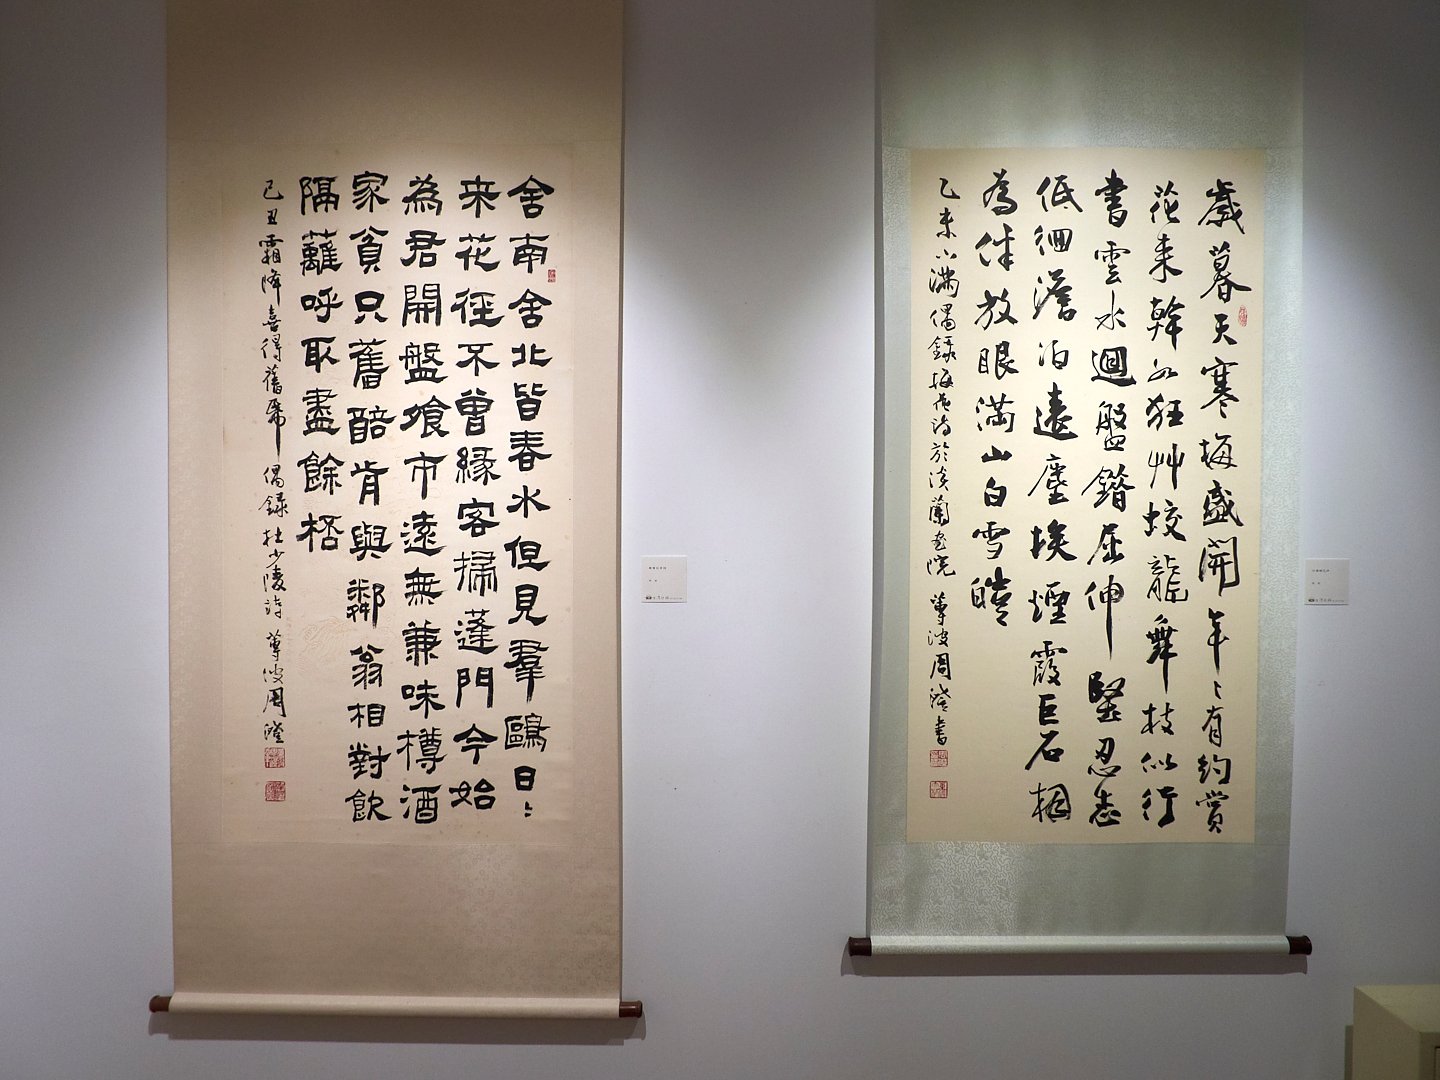 歲暮天寒梅盛開年〻有約賞
花来幹如狂艸蛟龍舞枝似行
書雲水迴盤鐕屈伸堅忍志
低徊澹泊遠塵埃煙霞巨石相
為伴放眼滿山白雪皚
乙未小滿偶錄梅花詩於淡蘭畫院 蓴波周澄書
舍南舍北皆春水但見羣鷗日〻
来花徑不曾緣客掃蓬門今始
為君開盤飧市遠無兼味樽酒
家貧只舊醅肯與鄰翁相對飲
隔蘺呼取盡餘桮
己丑霜降喜得舊帋偶錄杜少陵詩 蓴波周澄